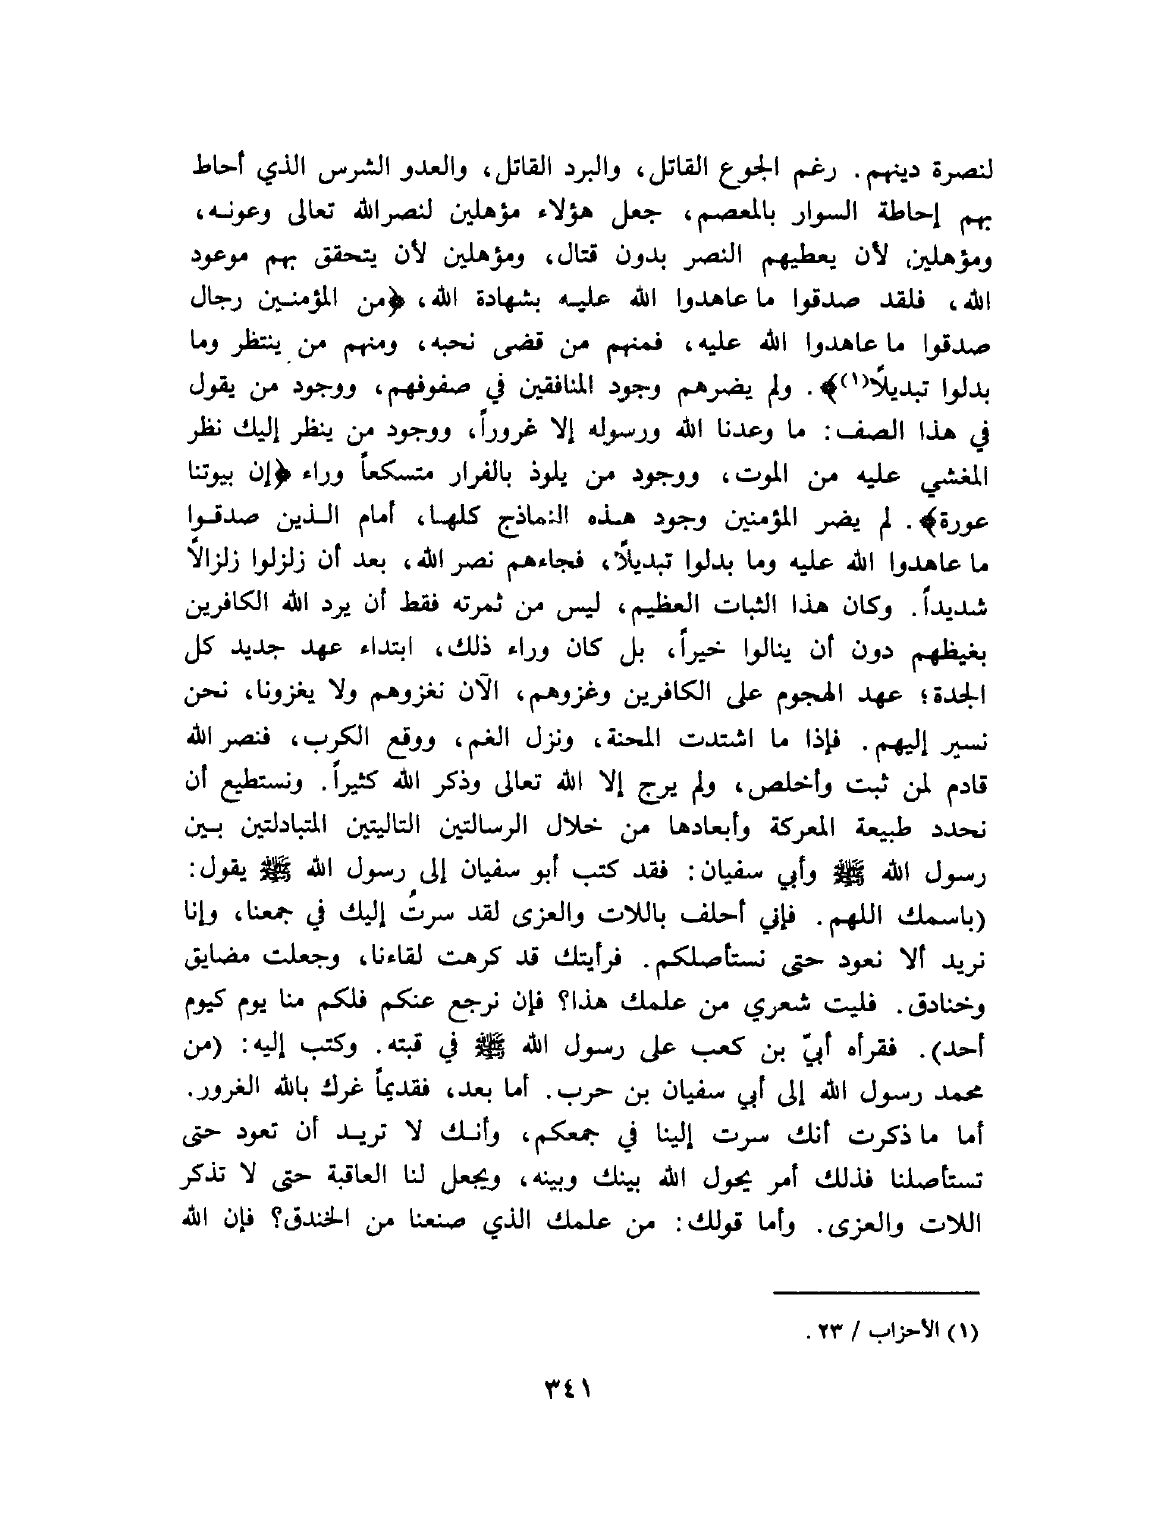 لنصرة دينهم. رغم الجوع القاتل، والبرد القاتل، والعدو الشرس الذي أحاط
بهم إحاطة السوار بالمعصم، جعل هؤلاء مؤهلين لنصرالله تعالى وعونه،
ومؤهلين لأن يعطيهم النصر بدون قتال، ومؤهلين لأن يتحقق بهم موعود
الله، فلقد صدقوا ما عاهدوا الله عليه بشهادة الله، ﴿من المؤمنين رجال
صدقوا ما عاهدوا الله عليه، فمنهم من قضى نحبه، ومنهم من ينتظر وما
بدلوا تبديلاً(١)﴾. ولم يضرهم وجود المنافقين في صفوفهم، ووجود من يقول
في هذا الصف: ما وعدنا الله ورسوله إلا غروراً، ووجود من ينظر إليك نظر
المغشي عليه من الموت، ووجود من يلوذ بالفرار متسكعاً وراء ﴿إن بيوتنا
عورة﴾. لم يضر المؤمنين وجود هذه النماذج كلها، أمام الذين صدقوا
ما عاهدوا الله عليه وما بدلوا تبديلاً، فجاءهم نصر الله، بعد أن زلزلوا زلزالاً
شديداً. وكان هذا الثبات العظيم، ليس من ثمرته فقط أن يرد الله الكافرين
بغيظهم دون أن ينالوا خيراً، بل كان وراء ذلك، ابتداء عهد جديد كل
الجدة؛ عهد الهجوم على الكافرين وغزوهم، الآن نغزوهم ولا يغزونا، نحن
نسير إليهم. فإذا ما اشتدت المحنة، ونزل الغم، ووقع الكرب، فنصر الله
قادم لمن ثبت وأخلص، ولم يرج إلا الله تعالى وذكر الله كثيراً. ونستطيع أن
نحدد طبيعة المعركة وأبعادها من خلال الرسالتين التاليتين المتبادلتين بين
رسول الله ﷺ وأبي سفيان: فقد كتب أبو سفيان إلى رسول الله ﷺ يقول:
(باسمك اللهم. فإني أحلف باللات والعزى لقد سرتُ إليك في جمعنا، وإنا
نريد ألا نعود حتى نستأصلكم. فرأيتك قد كرهت لقاءنا، وجعلت مضايق
وخنادق. فليت شعري من علمك هذا؟ فإن نرجع عنكم فلكم منا يوم كيوم
أحد). فقرأه أبيّ بن كعب على رسول الله ﷺ في قبته. وكتب إليه: (من
محمد رسول الله إلى أبي سفيان بن حرب. أما بعد، فقديماً غرك بالله الغرور.
أما ما ذكرت أنك سرت إلينا في جمعكم، وأنك لا تريد أن تعود حتى
تستأصلنا فذلك أمر يحول الله بينك وبينه، ويجعل لنا العاقبة حتى لا تذكر
اللات والعزى. وأما قولك: من علمك الذي صنعنا من الخندق؟ فإن الله
(١) الأحزاب / ٢٣ .
٣٤١